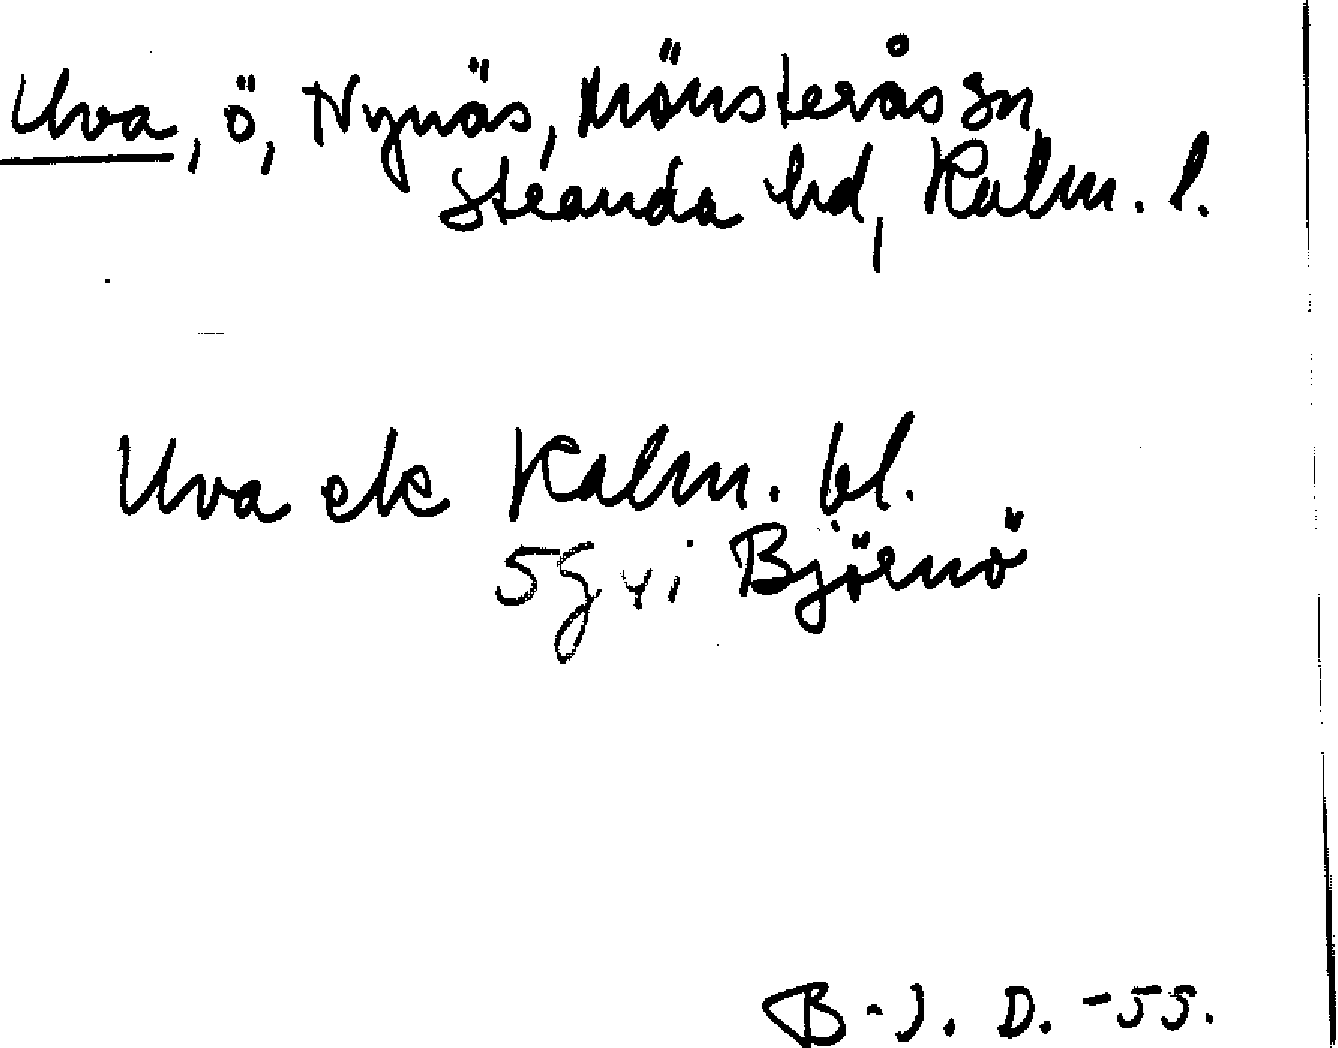 Uva, ö, Nynäs, Mönsterås sn,
Stranda hd, Kalm. l.
Uva ek Kalm. bl.
5g vi Björnö
B-J. D. -55.